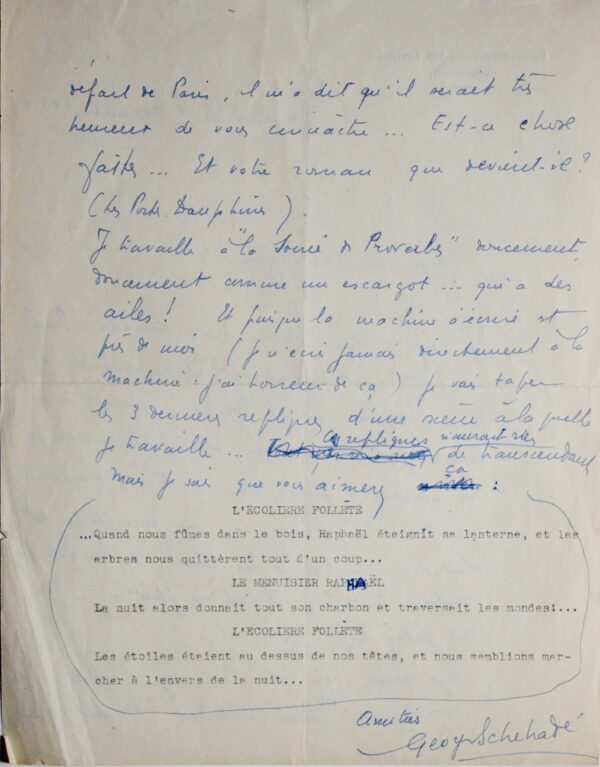 départ de Paris, il m'a dit qu'il serait très
heureux de vous connaître ... Est-ce chose
faite ... Et votre roman que devient-il ?
(Les Portes Dauphines).
Je travaille à "la Soirée des Proverbes" doucement,
doucement comme un escargot ... qui a des
ailes ! Et puisque la machine à écrire est
près de moi (je n'écris jamais directement à la
machine : j'ai horreur de ça) je vais taper
les 3 dernières répliques d'une scène à laquelle
je travaille ... Ces répliques n'auront rien
de transcendant
mais je sais que vous aimerez ça :
L'ECOLIERE FOLLETE
...Quand nous fûmes dans le bois, Raphaël éteignit sa lanterne, et les
arbres nous quittèrent tout d'un coup...
LE MENUISIER RAPHAËL
La nuit alors donnait tout son charbon et traversait les mondes!...
L'ECOLIERE FOLLETE
Les étoiles étaient au dessus de nos têtes, et nous semblions mar-
cher à l'envers de la nuit...
Amitiés
Georges Schehadé